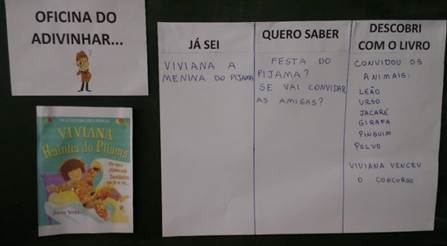 OFICINA DO
ADIVINHAR...
VIVIANA
Rainha do Pijama
JÁ SEI
VIVIANA A
MENINA DO PIJAMA
QUERO SABER
FESTA DO
PIJAMA?
SE VAI CONVIDAR
AS AMIGAS?
DESCOBRI
COM O LIVRO
CONVIDOU OS
ANIMAIS:
LEÃO
URSO
JACARÉ
GIRAFA
PINGUIM
POLVO
VIVIANA VENCEU
O CONCURSO